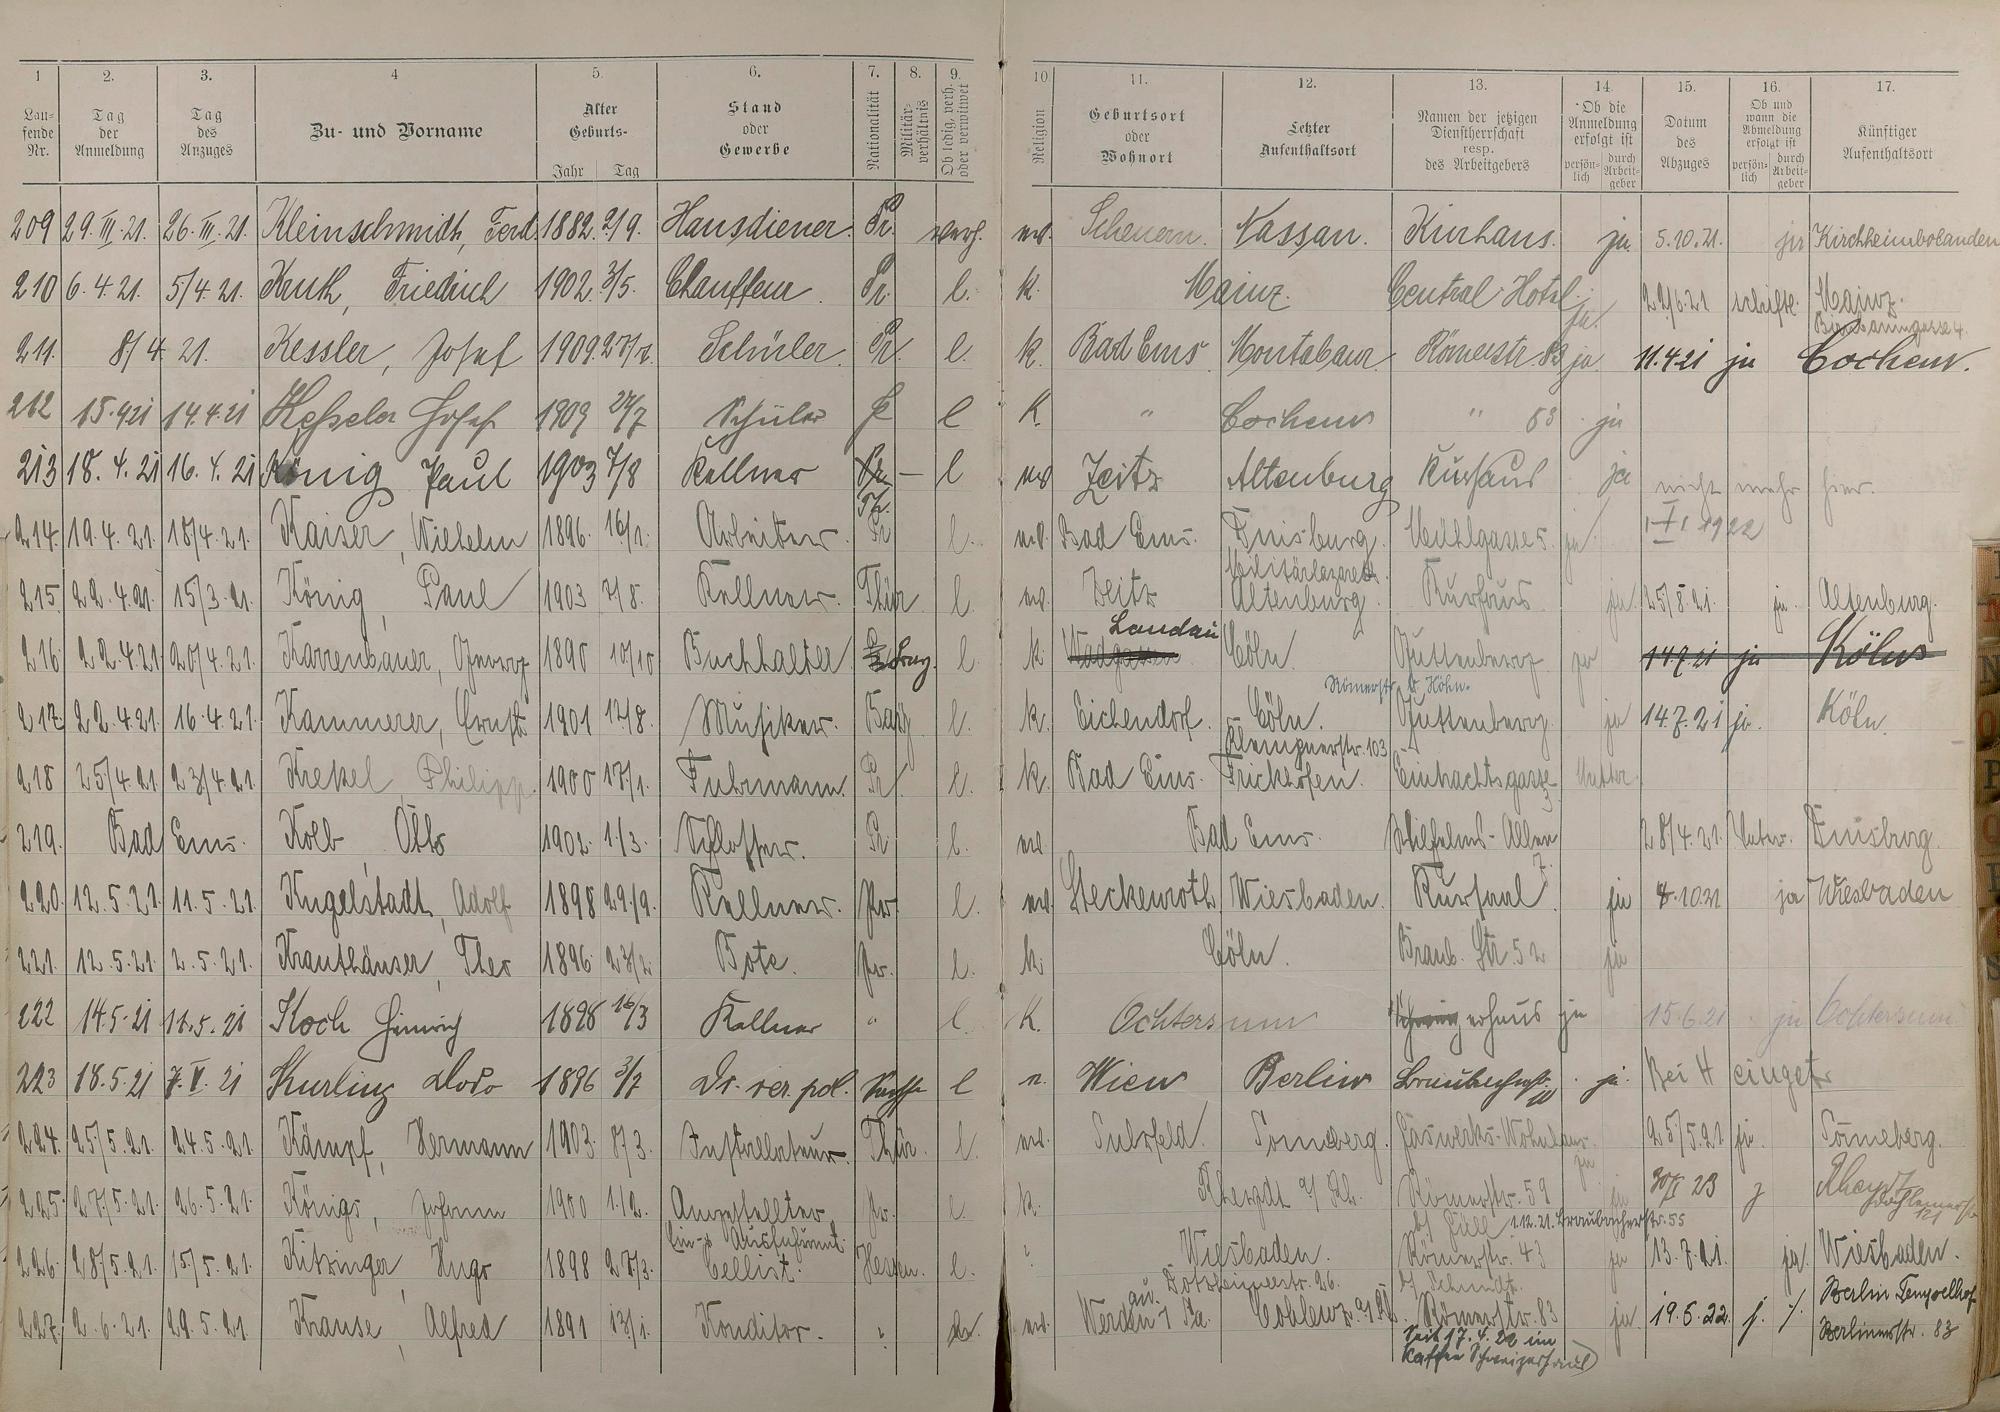 1 2. 3. 4 5. 6. 7. 8. 9. 10 11. 12. 13. 14. 15. 16. 17.
Laufende Nr. Tag der Anmeldung Tag des Anzuges Zu- und Vorname Alter Geburts- Jahr Tag Stand oder Gewerbe Nationalität Militärverhältnis Ob ledig, verh. oder verwitwet Religion Geburtsort oder Wohnort Letzter Aufenthaltsort Namen der jetzigen Dienstherrschaft resp. des Arbeitgebers Ob die Anmeldung erfolgt ist persönlich durch Arbeitgeber Datum des Abzuges Ob und wann die Abmeldung erfolgt ist persönlich durch Arbeitgeber Künftiger Aufenthaltsort
209 29.III.21. 26.III.21. Kleinschmidt, Ferd. 1882. 2/9. Hausdiener. Pr. verh. ev. Scheuern. Nassau. Kurhaus. ja. 5.10.21. ja Kirchheimbolanden
210 6.4.21. 5/4.21. Kruth, Friedrich 1902. 3/5. Chauffeur. Pr. l. k. Mainz. Central-Hotel. ja. schriftl. Mainz.
211. 8/4.21. Kessler, Josef 1909. Schüler. Pr. l. k. Bad Ems Montabaur Römerstr. 83 ja. 11.4.21 ja Cochem.
212 15.4.21 14.4.21 Keßeler Josef 1909 27/7 Schüler l K. " Cochem " 83 ja
213 18.4.21 16.4.21 König Paul 1903 7/8 Kellner Pr. — l ev Zeitz Altenburg Kurhaus ja nicht mehr hier.
Th.
214. 19.4.21. 18/4.21. Kaiser, Wilhelm 1896. 16/1. Arbeiter. Pr l. ev. Bad Ems. Duisburg. Mühlgasse 5. ja I 1922
215. 22.4.21. 15/3.21. König, Paul 1903 7/8. Kellner. Thür. l. ev. Zeitz Altenburg. Kurhaus ja. 25/8.21. ja. Altenburg.
Landau
216. 22.4.21. 20/4.21. Karrenbauer, 1890 10/10 Buchhalter l. k. Cöln. Guttenberg ja 14.7.21 ja Köln
Römerstr.
217. 22.4.21. 16.4.21. Kammerer, Ernst 1901 17/8. Musiker. l. k. Eichendorf. Cöln. Guttenberg. ja 14.7.21 ja. Köln.
103
218 25/4.21. 23/4.21. Krekel, Philipp. 1900 17/1. Fuhrmann. Pr. l. k. Bad Ems. Frickhofen. Eintrachtsgasse Mutter
219. Bad Ems. Kolb, Otto 1902. 1/3. Schlosser. Pr l. ev. Bad Ems. Wilhelms-Allee 7. 28/4.21. Vater. Duisburg.
220. 12.5.21. 11.5.21. Kugelstadt, Adolf 1898 29/9. Kellner. Pr. l. ev. Steckenroth Wiesbaden. Kursaal. ja 8.10.21 ja Wiesbaden
221. 12.5.21. 2.5.21. Krauthäuser, Theo 1896. 23/2. Bote. Pr. l. k. Cöln. Braub. Str. 52 ja
222 14.5.21 11.5.21 Koch Heinrich 1898 16/3 Kellner " l. K. Ochtersum ja 15.6.21 ja Ochtersum
223 18.5.21 7.V.21 Kurling Dodo 1896 3/7 Dr. rer. pol. l Wien Berlin ja. Bei H eingetr
224. 25/5.21. 24.5.21. Kämpf, Hermann 1903. 8/3. Installateur. Thür. l. ev. Suhrfeld. Sonneberg. Gaswerks-Wohnhaus. ja 25/5.21 ja. Sonneberg.
225. 27/5.21. 26.5.21. Königs, Johann 1900 1.12. Angestellter Pr. l. k. Rheydt Römerstr. 59 ja 23 Rheydt
1.12.21. Braubacherstr. 55
226. 28/5.21. 15/5.21. Kitzinger, Hugo 1898 27/3. Cellist. Hessen. l. " Wiesbaden. Römerstr. 43 ja 13.7.21. ja. Wiesbaden.
Dotzheimerstr. 26. b/ Schmidt.
227. 2.6.21. 29.5.21. Krause, Alfred 1891 13/1. Konditor. " ev. Coblenz Römerstr. 83 ja. 19.5.22. j. Berlin Tempelhof
Berlinerstr. 83
seit 17.4.22 im
Kaffee Schweizerhaus)